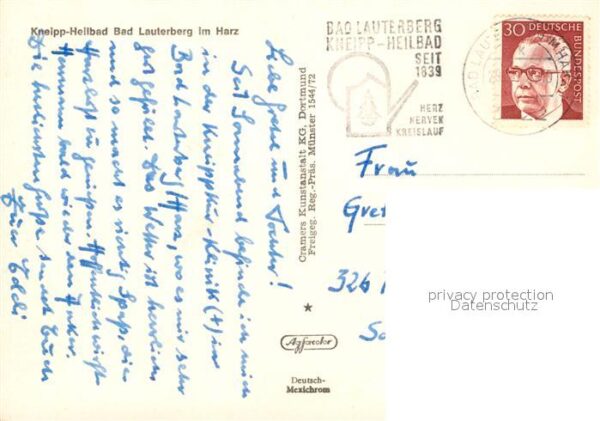 Kneipp-Heilbad Bad Lauterberg im Harz
Liebe Gretel und Tochter!
Seit Sonnabend befinde ich mich
in der Kneippkur-Klinik (+) in
Bad Lauterberg/Harz, wo es mir sehr
gut gefällt. Das Wetter ist herrlich
und so macht es richtig Spaß, die
Harzluft zu genießen. Hoffentlich wirft
Hermann bald wieder den Anker.
Die herzlichsten Grüße sendet Euch
Euer Eddi
Cramers Kunstanstalt KG, Dortmund
Freigeg. Reg.-Präs. Münster 1544/72
Agfacolor
Deutsch-
Mexichrom
BAD LAUTERBERG
KNEIPP-HEILBAD
SEIT
1839
HERZ
NERVEN
KREISLAUF
BAD LAUTERBERG IM HARZ
30 DEUTSCHE
BUNDESPOST
Frau
Gret
326
privacy protection
Datenschutz